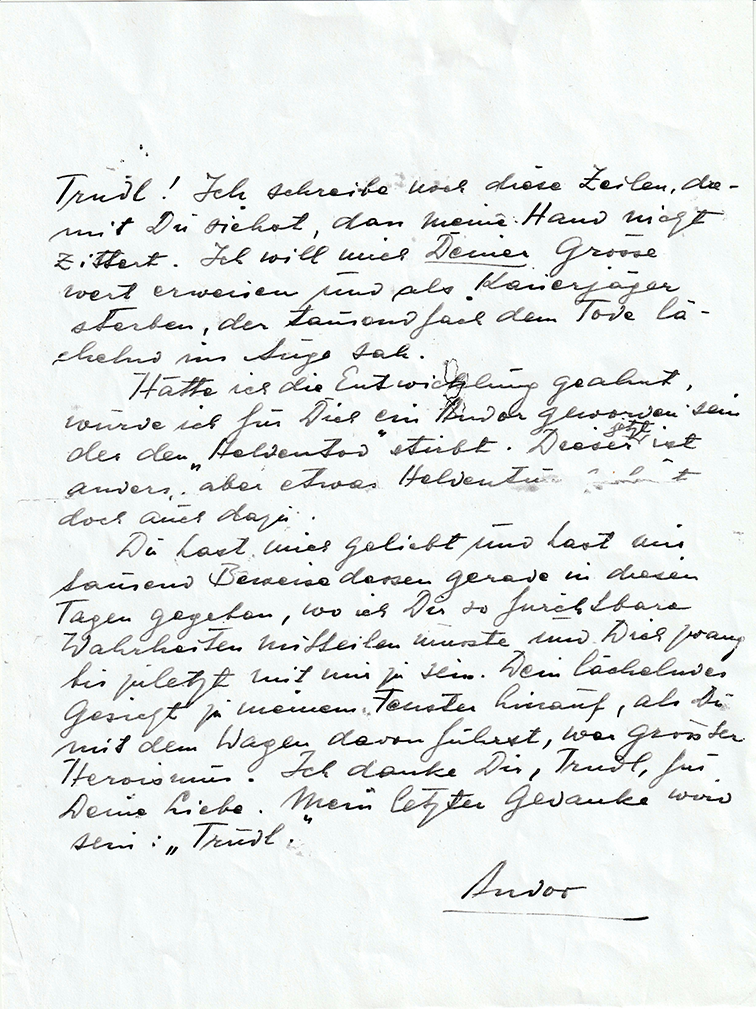 Trudl! Ich schreibe noch diese Zeilen, da-
mit Du siehst, dass meine Hand nicht
zittert. Ich will mich Deiner Grösse
wert erweisen und als "Kaiserjäger
sterben, der tausendfach dem Tode lä-
chelnd ins Auge sah.
Hätte ich die Entwicklung geahnt,
würde ich für Dich ein Andor geworden sein
der den „Heldentod" stirbt. Dieser jetzt ist
anders, aber etwas Heldentum
doch auch dazu.
Du hast mich geliebt und hast mir
tausend Beweise dessen gerade in diesen
Tagen gegeben, wo ich Dir so furchtbare
Wahrheiten mitteilen musste und Dich zwang
bis zuletzt mit mir zu sein. Dein lächelndes
Gesicht zu meinem Fenster hinauf, als Du
mit dem Wagen davon fuhrst, war grösster
Heroismus. Ich danke Dir, Trudl, für
Deine Liebe. Mein letzter Gedanke wird
sein: „Trudl."
Andor